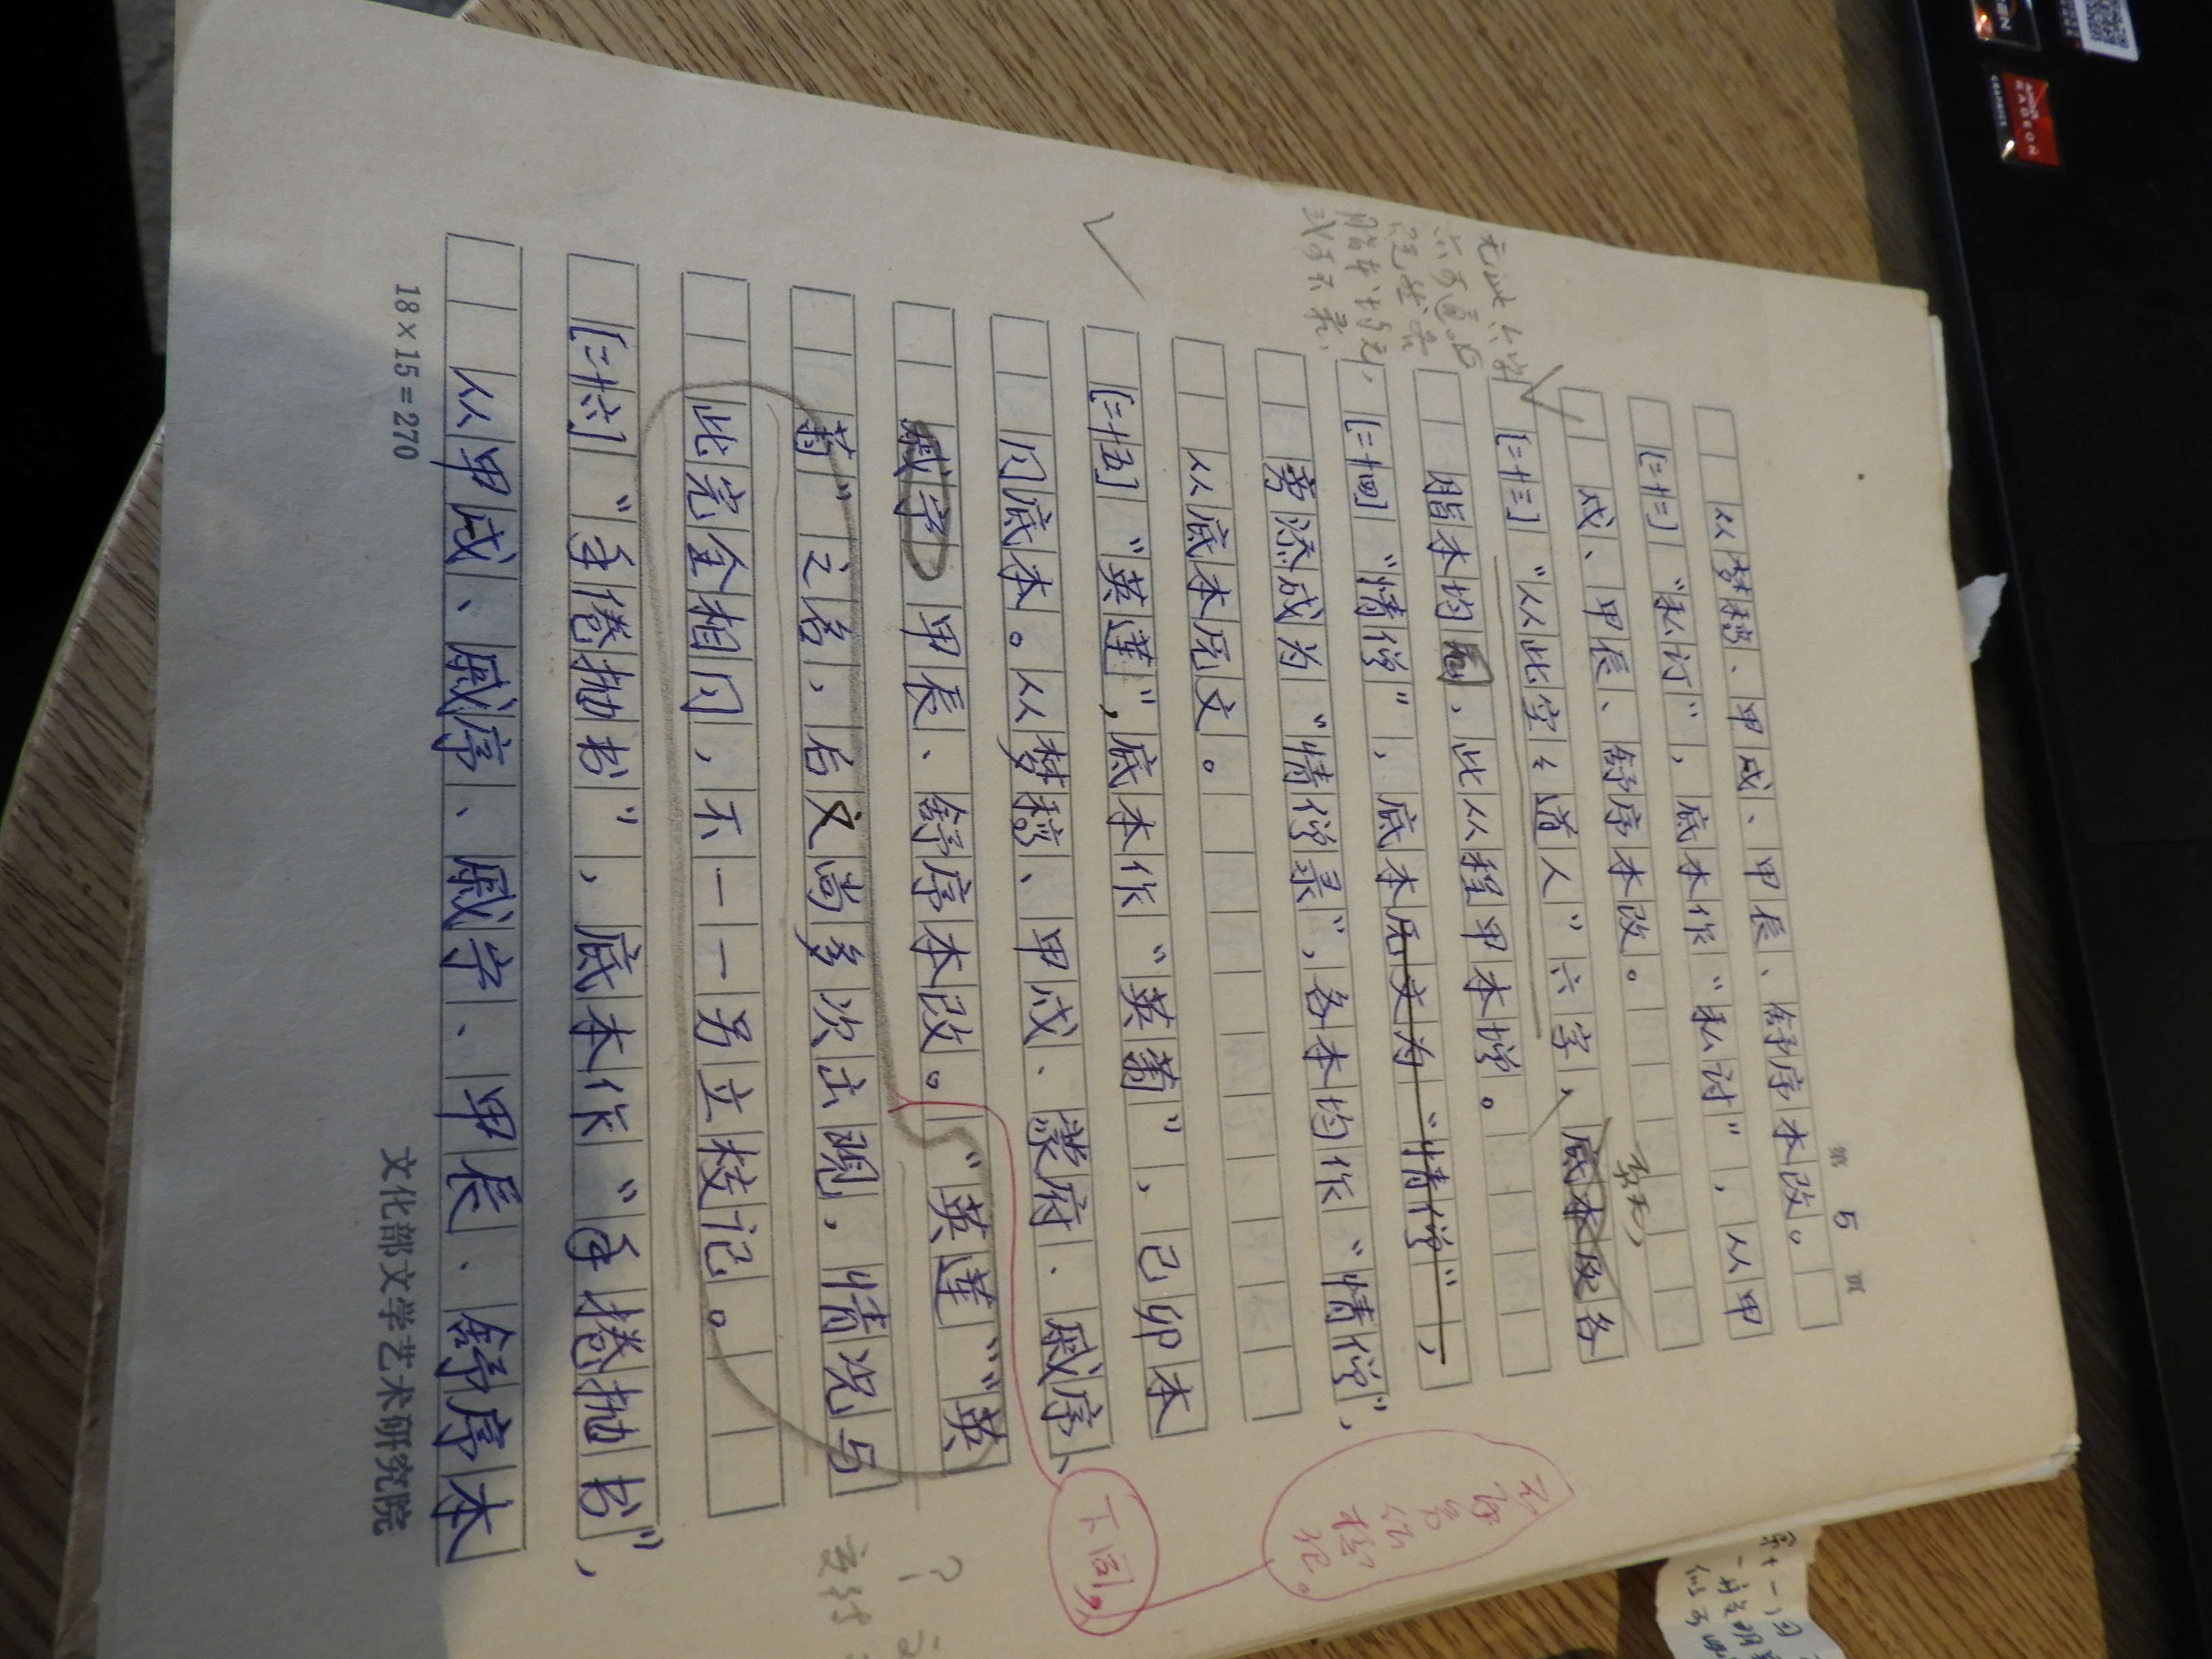 第 5 页
从梦稿、甲戌、甲辰、舒序本改。
[二十二] “私订”，底本作“私讨”，从甲
戌、甲辰、舒序本改。
[二十三] “从此空空道人”六字，底本及各
脂本均无，此从程甲本增。
[二十四] “情僧”，底本原文为“情僧”，
旁添成为“情僧录”，各本均作“情僧”，
从底本原文。
[二十五] “英莲”，底本作“英菊”，己卯本
同底本。从梦稿、甲戌、蒙府、戚序、
戚宁、甲辰、舒序本改。“英莲”“英
菊”之名，后文尚多次出现，情况与
此完全相同，不一一另立校记。
[二十六] “手倦抛书”，底本作“手捲抛书”，
从甲戌、戚序、戚宁、甲辰、舒序本
18×15=270
文化部文学艺术研究院
下同，
RADEON
GRAPHICS